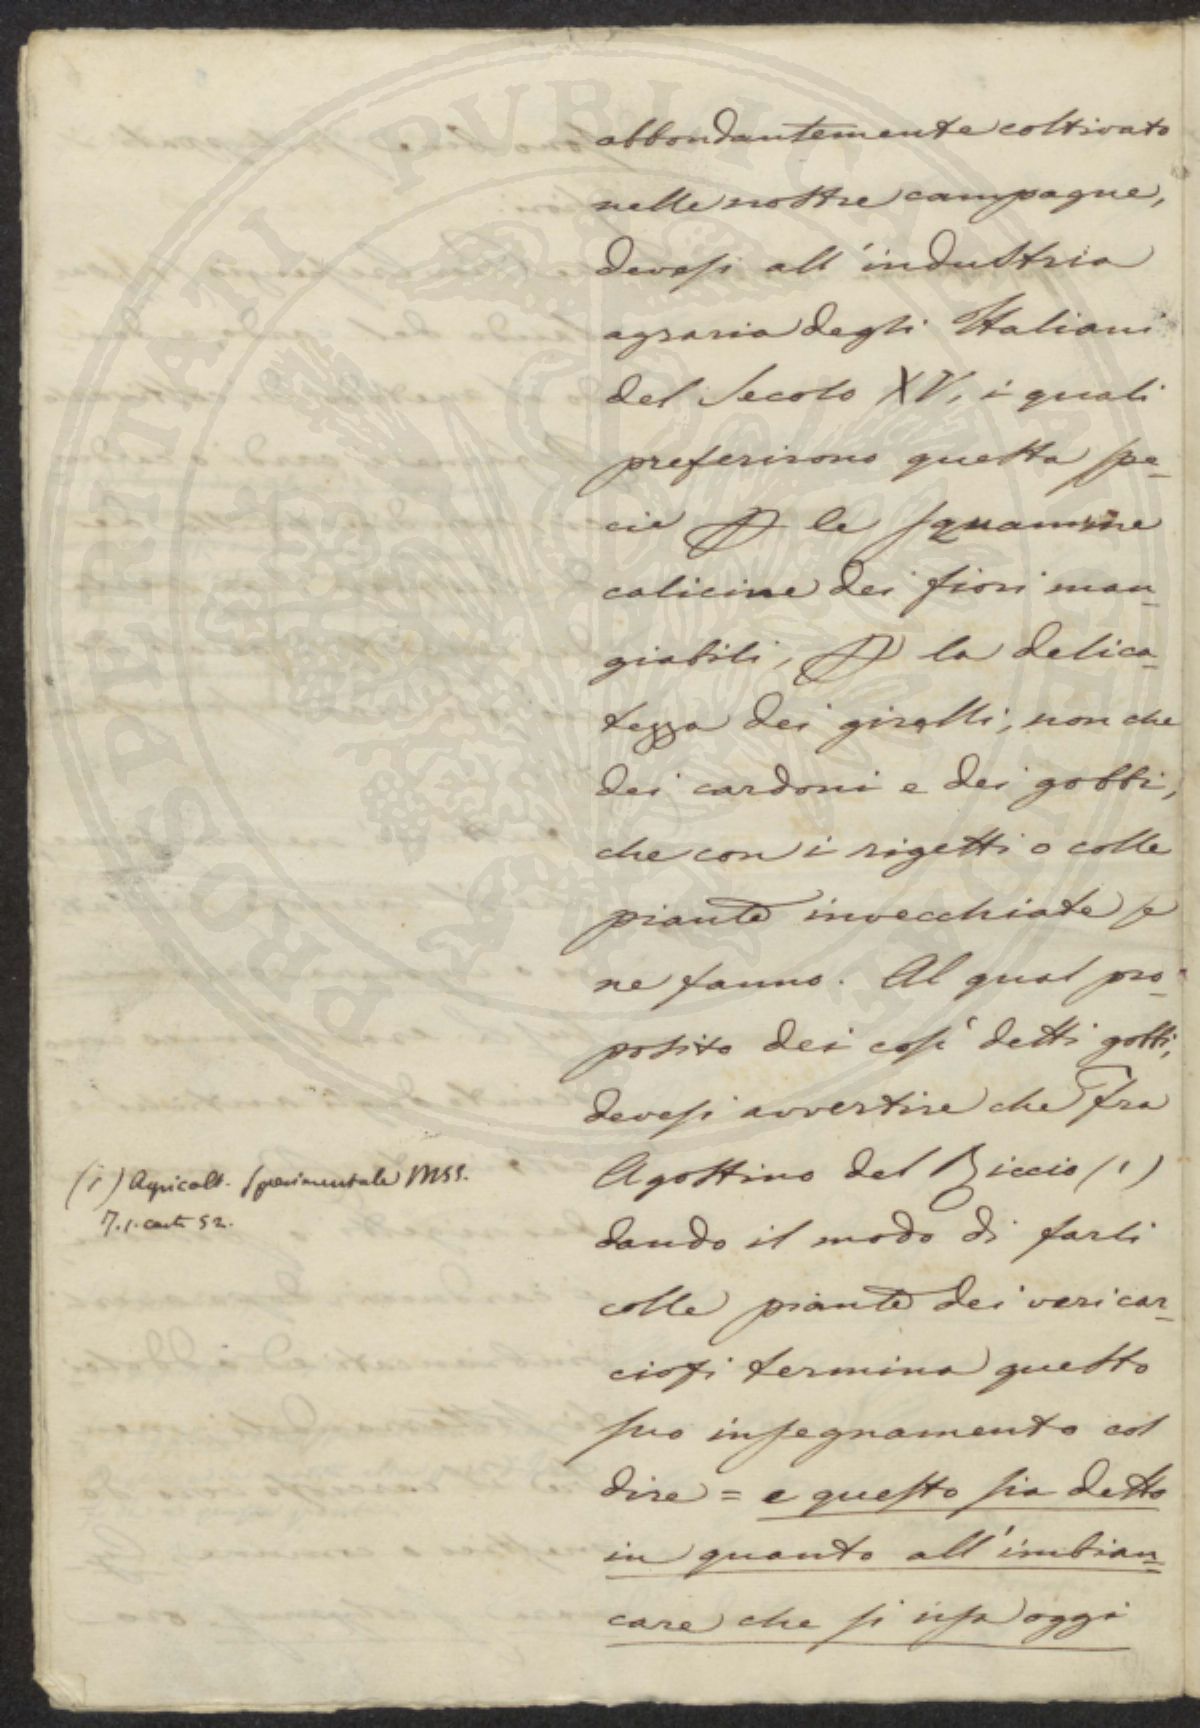 abbondantemente coltivato
nelle nostre campagne,
devesi all'industria
agraria degli Italiani
del Secolo XV, i quali
preferirono questa spe-
cie p le squamme
calicine dei fiori man-
giabili, p la delica-
tezza dei girelli, non che
dei cardoni e dei gobbi,
che con i rigetti o colle
piante invecchiate se
ne fanno. Al qual pro-
posito dei così detti gobbi,
devesi avvertire che Fra
Agostino del Riccio (1)
dando il modo di farli
colle piante dei veri car-
ciofi termina questo
suo insegnamento col
dire = e questo sia detto
in quanto all'imbian-
care che si usa oggi
(1) Agricolt. sperimentale MSS.
T. 1. carte 52.
PROSPERITATI PUBLICAE